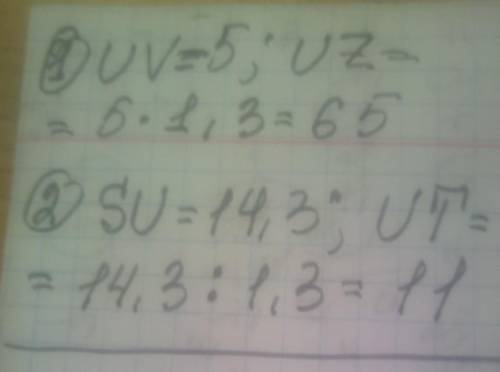 ① UV=5; UZ=
= 5·1,3=65
② SU=14,3; UT=
= 14,3:1,3=11